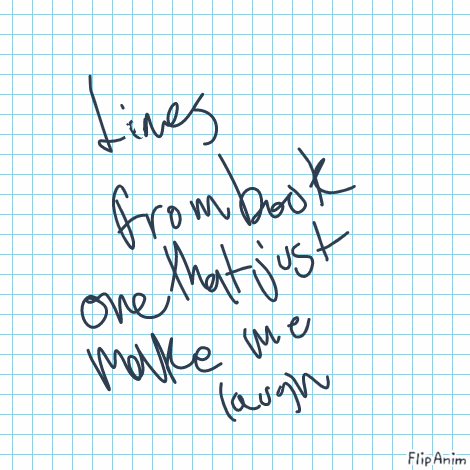 Lines
from book
one that just
make me
laugh
FlipAnim